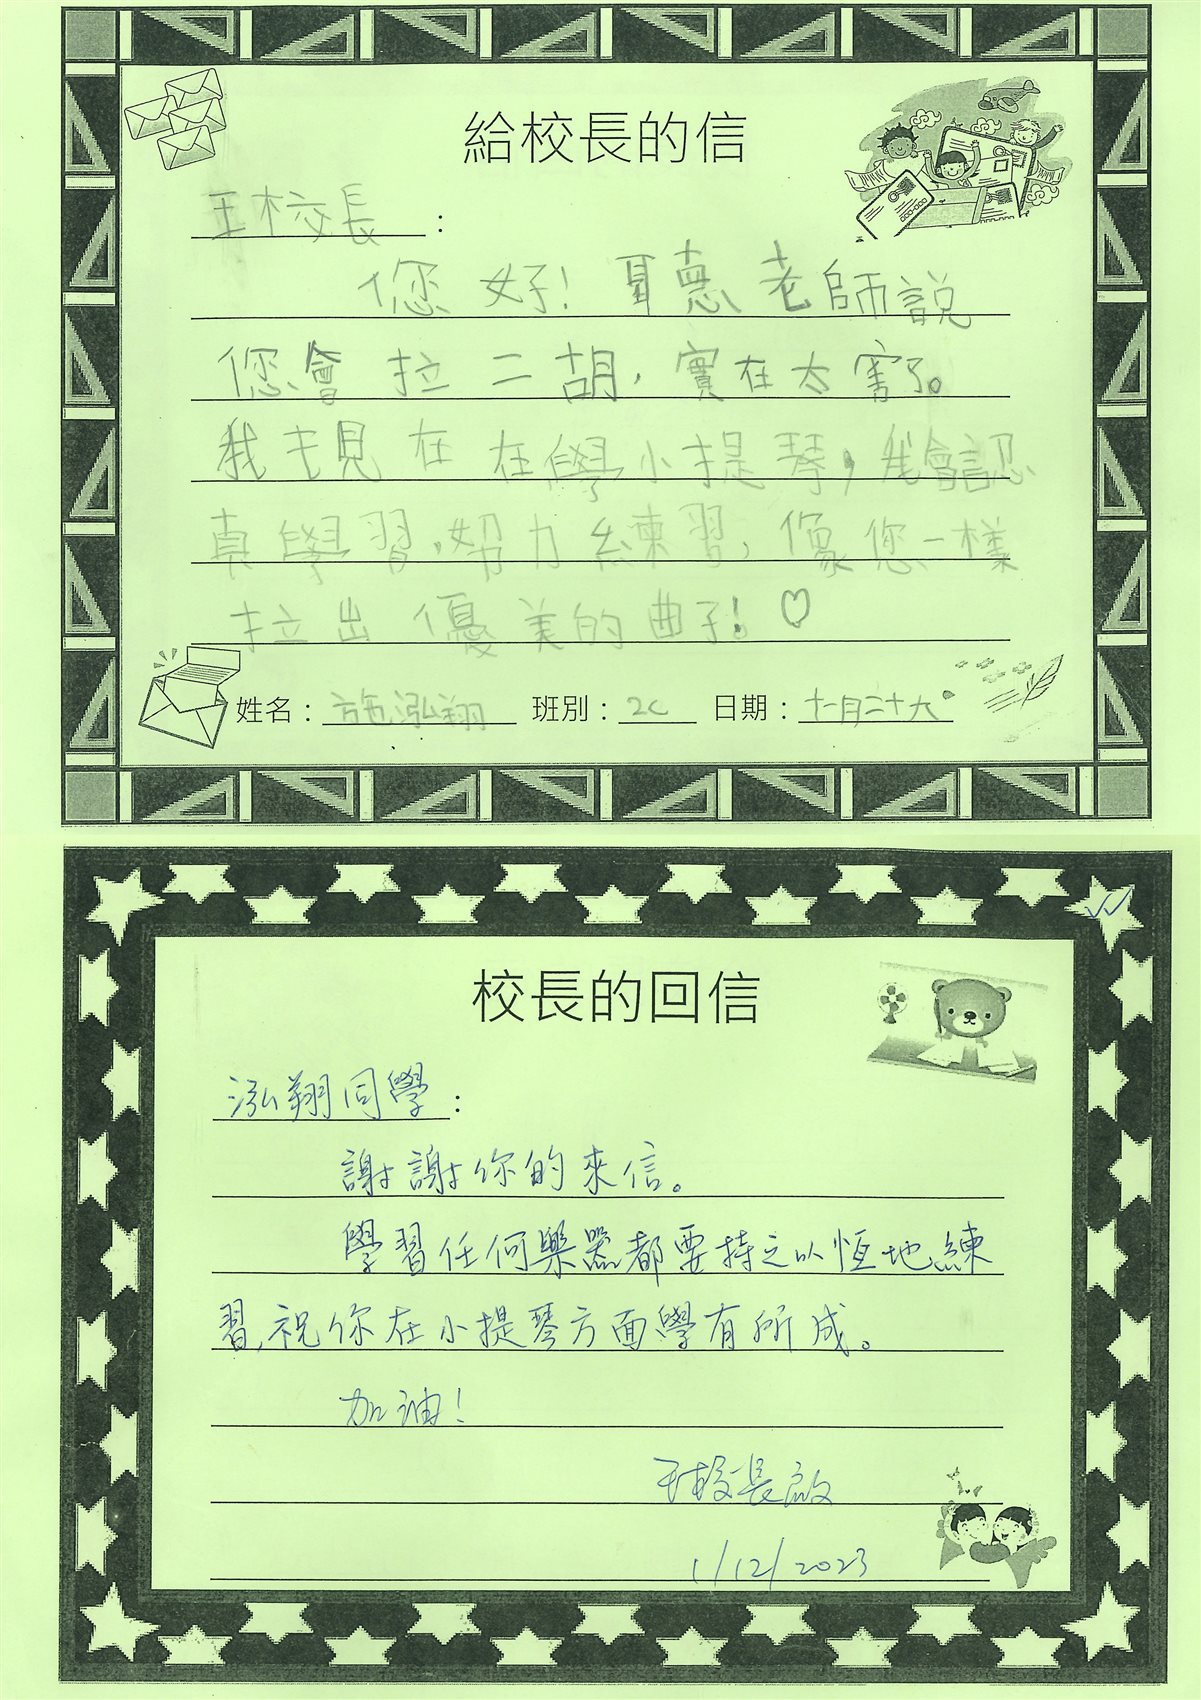 給校長的信
王校長：
您好！聽老師說
您會拉二胡，實在太害了。
我現在在學小提琴，我會認
真學習，努力練習，像您一樣
拉出優美的曲子！♡
姓名：施泓翔 班別：2C 日期：十一月二十九
校長的回信
泓翔同學：
謝謝你的來信。
學習任何樂器都要持之以恆地練
習，祝你在小提琴方面學有所成。
加油！
王校長啟
1/12/2023